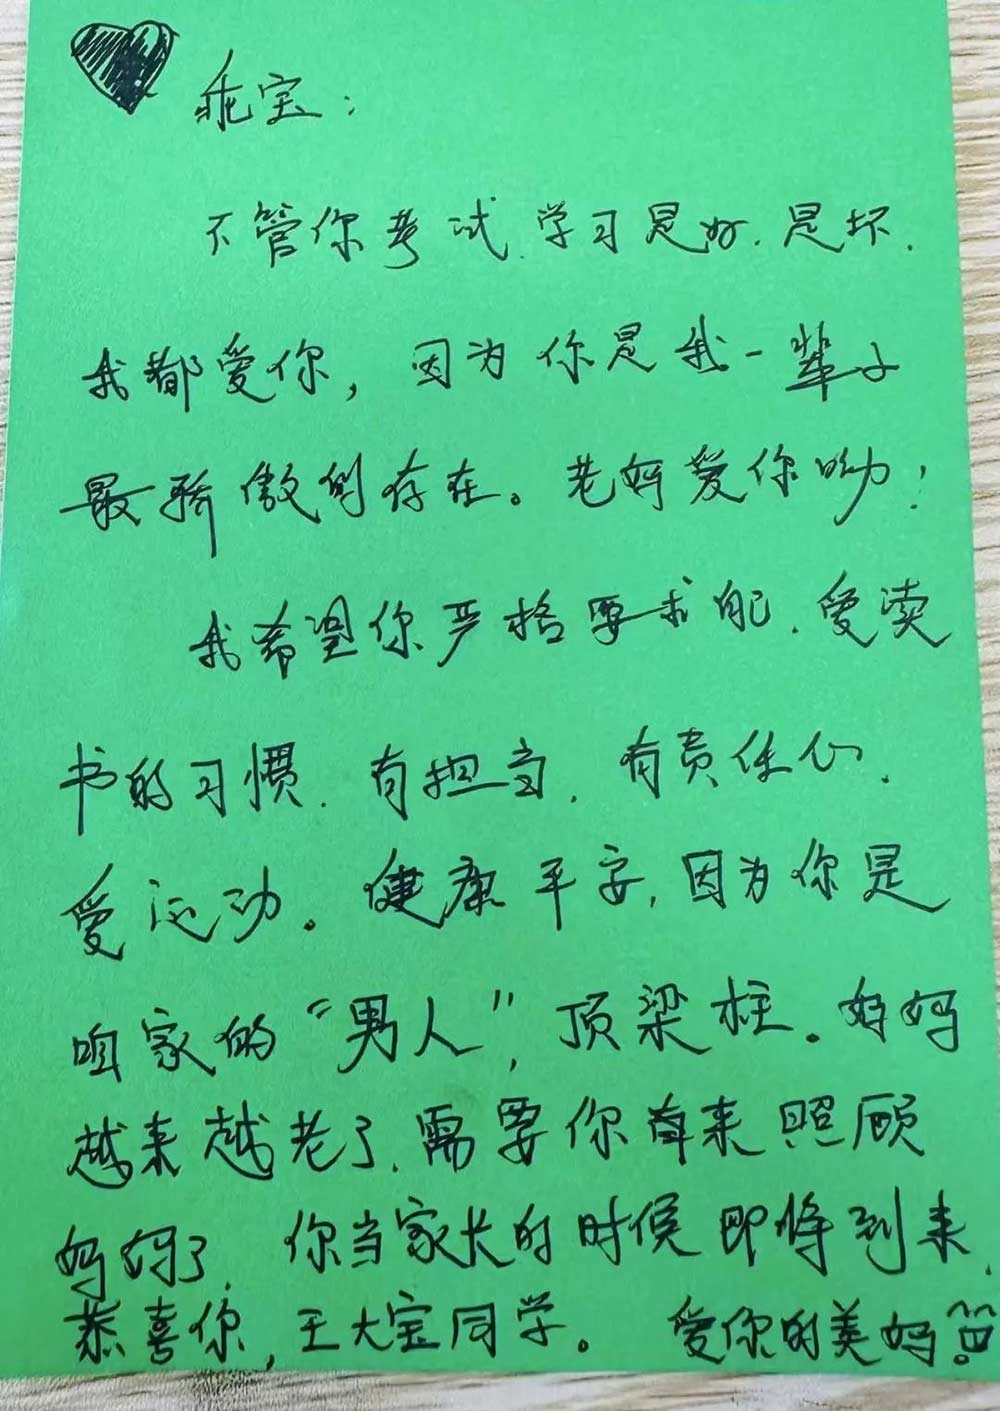 乖宝：
不管你考试、学习是好、是坏、
我都爱你，因为你是我一辈子
最骄傲的存在。老妈爱你呦！
我希望你严格要求自己、爱读
书的习惯、有担当、有责任心、
爱运动。健康平安，因为你是
咱家的“男人”，顶梁柱。妈妈
越来越老了、需要你有来照顾
妈妈了、你当家长的时候即将到来、
恭喜你，王大宝同学。 爱你的美妈